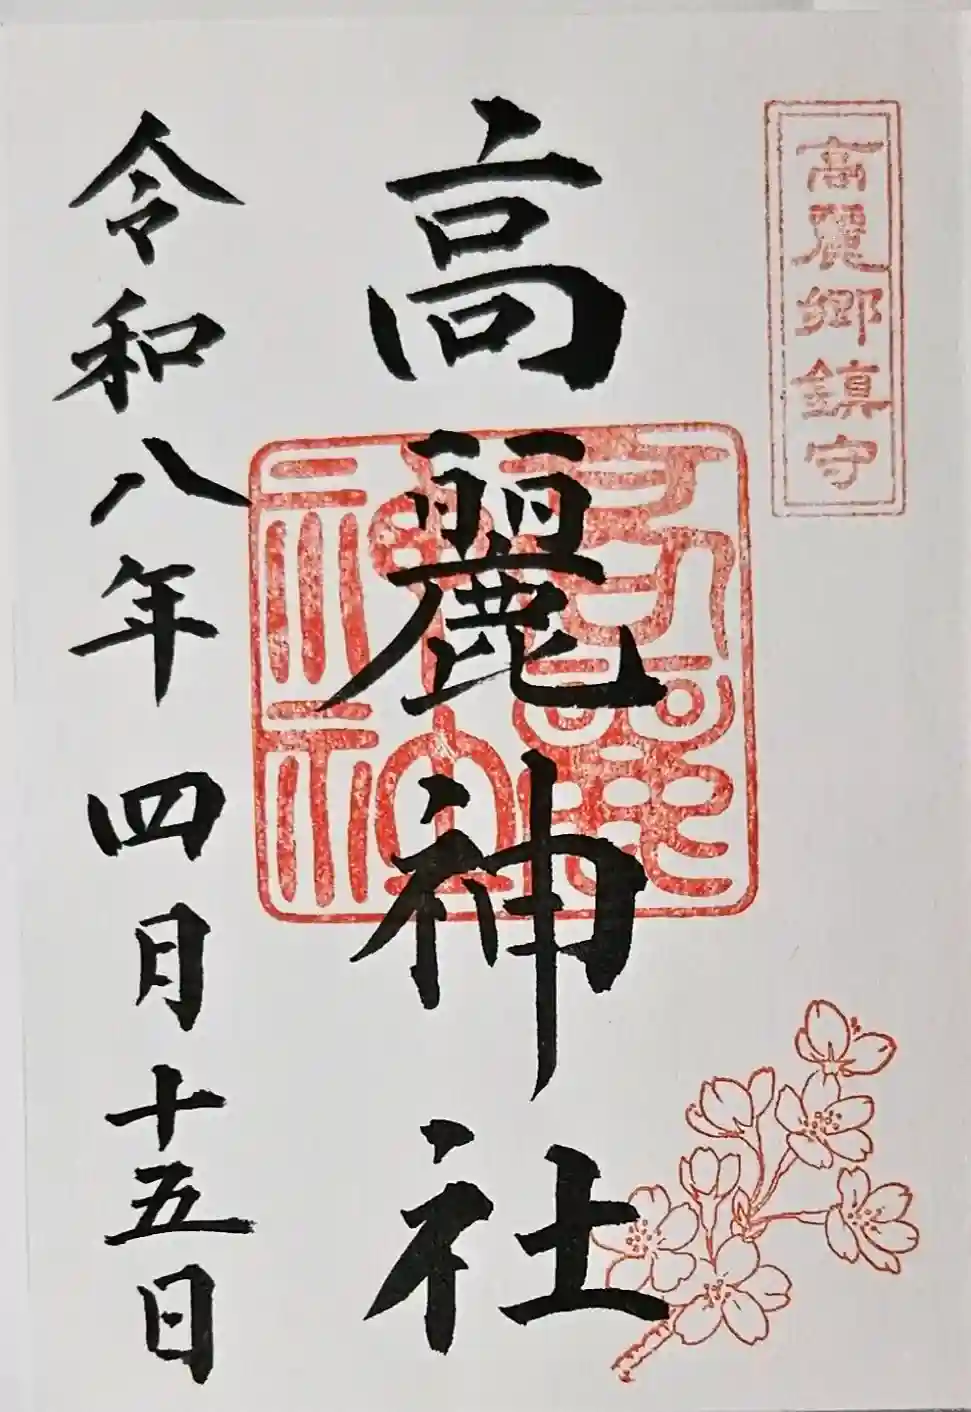 高麗郷鎮守
高麗神社
高麗神社
令和八年 四月十五日